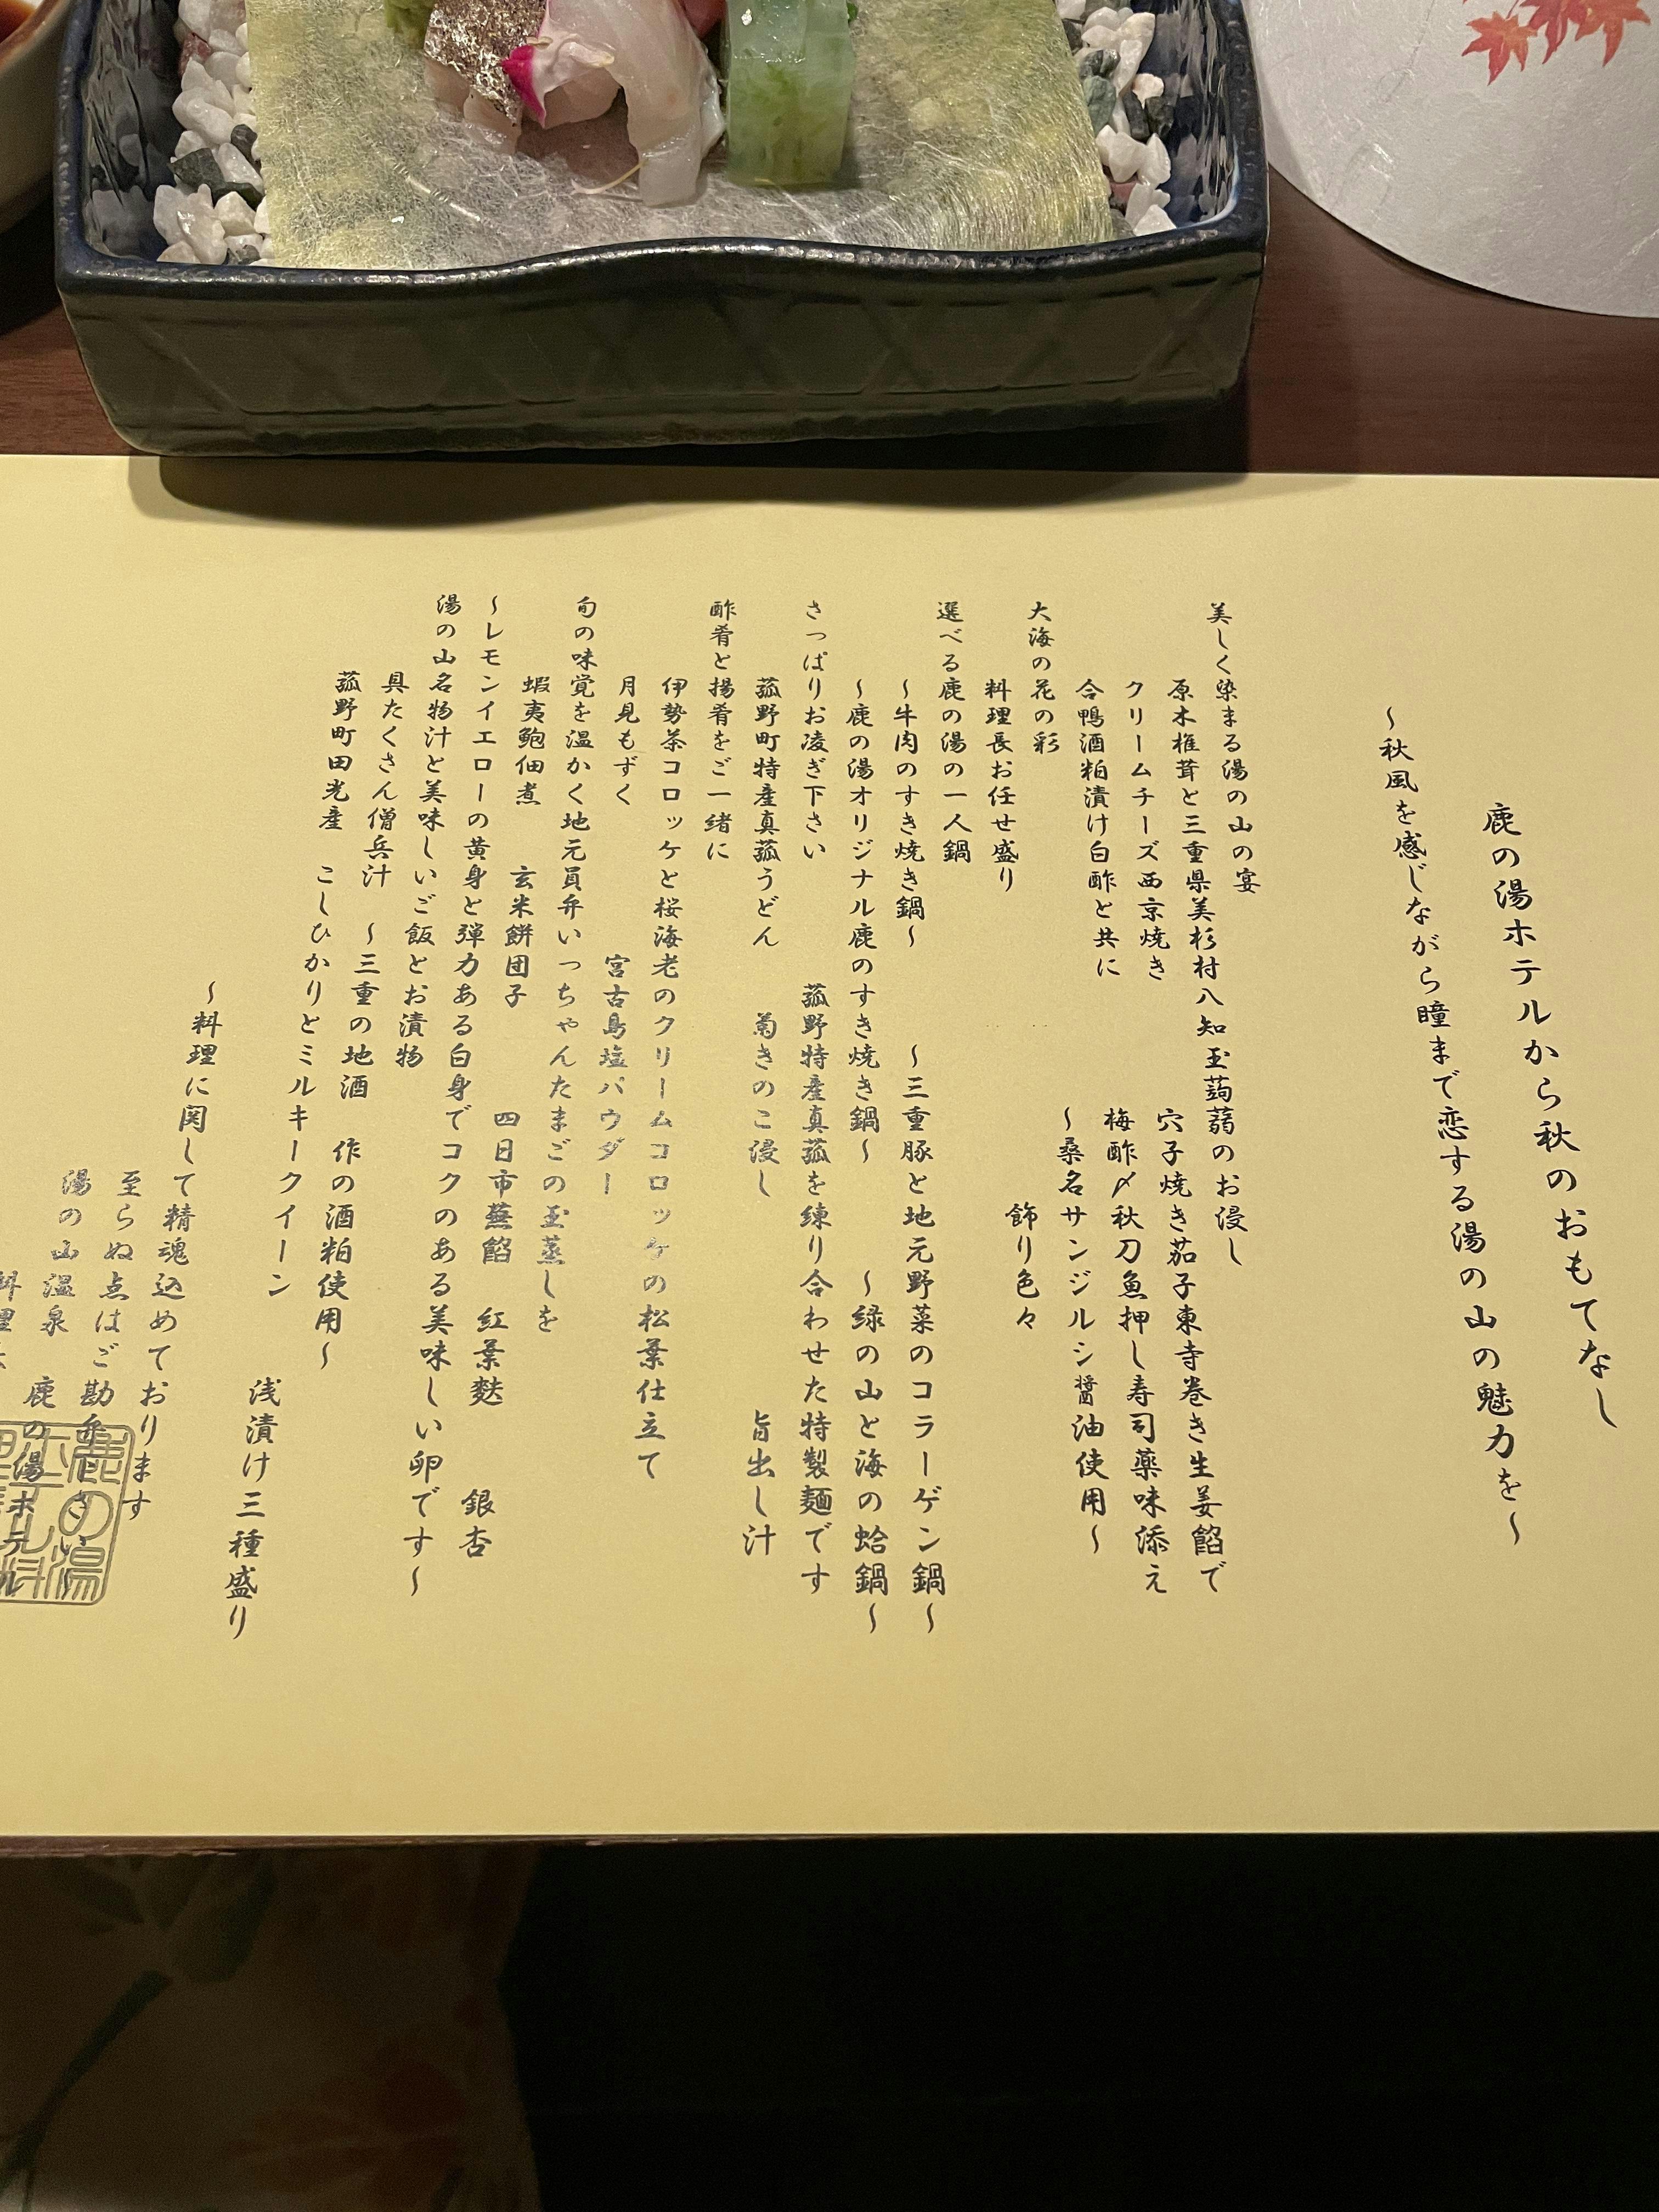 鹿の湯ホテルから秋のおもてなし
～秋風を感じながら瞳まで恋する湯の山の魅力を～
美しく染まる湯の山の宴
原木椎茸と三重県美杉村八知玉蒟蒻のお浸し
クリームチーズ西京焼き 穴子焼き茄子東寺巻き生姜餡で
合鴨酒粕漬け白酢と共に 梅酢〆秋刀魚押し寿司薬味添え
～桑名サンジルシ醤油使用～
大海の花の彩
料理長お任せ盛り 飾り色々
選べる鹿の湯の一人鍋
～牛肉のすき焼き鍋～ ～三重豚と地元野菜のコラーゲン鍋～
～鹿の湯オリジナル鹿のすき焼き鍋～ ～緑の山と海の蛤鍋～
さっぱりお凌ぎ下さい 菰野特産真菰を練り合わせた特製麺です
菰野町特産真菰うどん 菊きのこ浸し 旨出し汁
酢肴と揚肴をご一緒に
伊勢茶コロッケと桜海老のクリームコロッケの松葉仕立て
月見もずく 宮古島塩パウダー
旬の味覚を温かく地元員弁いっちゃんたまごの玉蒸しを
蝦夷鮑佃煮 玄米餅団子 四日市蕪餡 紅葉麩 銀杏
～レモンイエローの黄身と弾力ある白身でコクのある美味しい卵です～
湯の山名物汁と美味しいご飯とお漬物
具たくさん僧兵汁 ～三重の地酒 作の酒粕使用～
菰野町田光産 こしひかりとミルキークイーン 浅漬け三種盛り
～料理に関して精魂込めております
至らぬ点はご勘弁
湯の山温泉 鹿の湯ホテル
鹿の湯